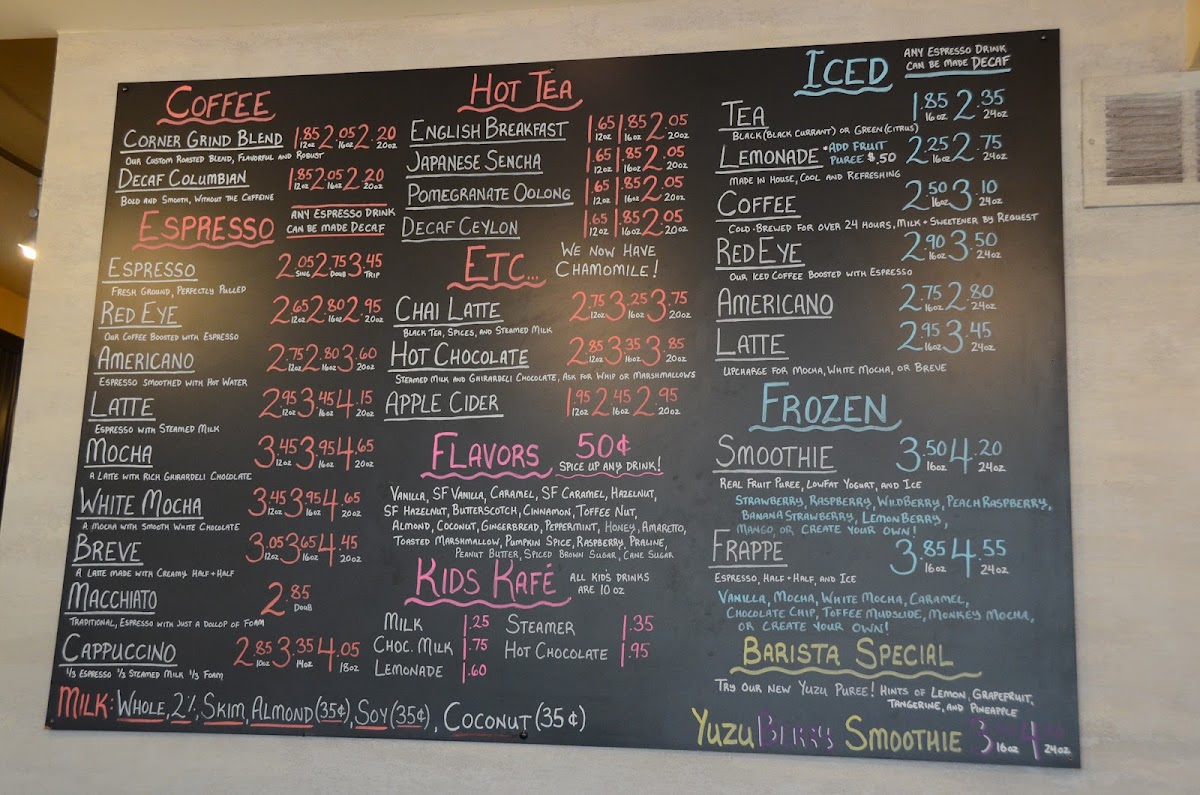 COFFEE
CORNER GRIND BLEND 1.85 12oz 2.05 16oz 2.20 20oz
OUR CUSTOM ROASTED BLEND, FLAVORFUL AND ROBUST
DECAF COLUMBIAN 1.85 12oz 2.05 16oz 2.20 20oz
BOLD AND SMOOTH, WITHOUT THE CAFFEINE
ESPRESSO
ANY ESPRESSO DRINK
CAN BE MADE DECAF
ESPRESSO 2.05 SING 2.75 DOUB 3.45 TRIP
FRESH GROUND, PERFECTLY PULLED
RED EYE 2.65 12oz 2.80 16oz 2.95 20oz
OUR COFFEE BOOSTED WITH ESPRESSO
AMERICANO 2.75 12oz 2.80 16oz 3.60 20oz
ESPRESSO SMOOTHED WITH HOT WATER
LATTE 2.95 12oz 3.45 16oz 4.15 20oz
ESPRESSO WITH STEAMED MILK
MOCHA 3.45 12oz 3.95 16oz 4.65 20oz
A LATTE WITH RICH GHIRARDELI CHOCOLATE
WHITE MOCHA 3.45 12oz 3.95 16oz 4.65 20oz
A MOCHA WITH SMOOTH WHITE CHOCOLATE
BREVE 3.05 12oz 3.65 16oz 4.45 20oz
A LATTE MADE WITH CREAMY HALF + HALF
MACCHIATO 2.85 DOUB
TRADITIONAL, ESPRESSO WITH JUST A DOLLOP OF FOAM
CAPPUCCINO 2.85 10oz 3.35 14oz 4.05 18oz
1/3 ESPRESSO 1/3 STEAMED MILK 1/3 FOAM
MILK: WHOLE, 2%, SKIM, ALMOND (35¢), SOY (35¢), COCONUT (35¢)
HOT TEA
ENGLISH BREAKFAST 1.65 12oz 1.85 16oz 2.05 20oz
JAPANESE SENCHA 1.65 12oz 1.85 16oz 2.05 20oz
POMEGRANATE OOLONG 1.65 12oz 1.85 16oz 2.05 20oz
DECAF CEYLON 1.65 12oz 1.85 16oz 2.05 20oz
ETC...
WE NOW HAVE
CHAMOMILE!
CHAI LATTE 2.75 12oz 3.25 16oz 3.75 20oz
BLACK TEA, SPICES, AND STEAMED MILK
HOT CHOCOLATE 2.85 12oz 3.35 16oz 3.85 20oz
STEAMED MILK AND GHIRARDELI CHOCOLATE, ASK FOR WHIP OR MARSHMALLOWS
APPLE CIDER 1.95 12oz 2.45 16oz 2.95 20oz
FLAVORS 50¢
SPICE UP ANY DRINK!
VANILLA, SF VANILLA, CARAMEL, SF CARAMEL, HAZELNUT,
SF HAZELNUT, BUTTERSCOTCH, CINNAMON, TOFFEE NUT,
ALMOND, COCONUT, GINGERBREAD, PEPPERMINT, HONEY, AMARETTO,
TOASTED MARSHMALLOW, PUMPKIN SPICE, RASPBERRY, PRALINE,
PEANUT BUTTER, SPICED BROWN SUGAR, CANE SUGAR
KIDS KAFÉ
ALL KIDS DRINKS
ARE 10 OZ
MILK 1.25 STEAMER 1.35
CHOC. MILK 1.75 HOT CHOCOLATE 1.95
LEMONADE 1.60
ICED
ANY ESPRESSO DRINK
CAN BE MADE DECAF
TEA 1.85 16oz 2.35 24oz
BLACK (BLACK CURRANT) OR GREEN (CITRUS)
LEMONADE *ADD FRUIT PUREE $.50 2.25 16oz 2.75 24oz
MADE IN HOUSE, COOL AND REFRESHING
COFFEE 2.50 16oz 3.10 24oz
COLD-BREWED FOR OVER 24 HOURS, MILK + SWEETENER BY REQUEST
RED EYE 2.90 16oz 3.50 24oz
OUR ICED COFFEE BOOSTED WITH ESPRESSO
AMERICANO 2.75 16oz 2.80 24oz
LATTE 2.95 16oz 3.45 24oz
UPCHARGE FOR MOCHA, WHITE MOCHA, OR BREVE
FROZEN
SMOOTHIE 3.50 16oz 4.20 24oz
REAL FRUIT PUREE, LOWFAT YOGURT, AND ICE
STRAWBERRY, RASPBERRY, WILDBERRY, PEACH RASPBERRY,
BANANA STRAWBERRY, LEMON BERRY,
MANGO, OR CREATE YOUR OWN!
FRAPPE 3.85 16oz 4.55 24oz
ESPRESSO, HALF + HALF, AND ICE
VANILLA, MOCHA, WHITE MOCHA, CARAMEL,
CHOCOLATE CHIP, TOFFEE MUDSLIDE, MONKEY MOCHA,
OR CREATE YOUR OWN!
BARISTA SPECIAL
TRY OUR NEW YUZU PUREE! HINTS OF LEMON, GRAPEFRUIT,
TANGERINE, AND PINEAPPLE
YUZU BERRY SMOOTHIE 3 16oz 4 24oz